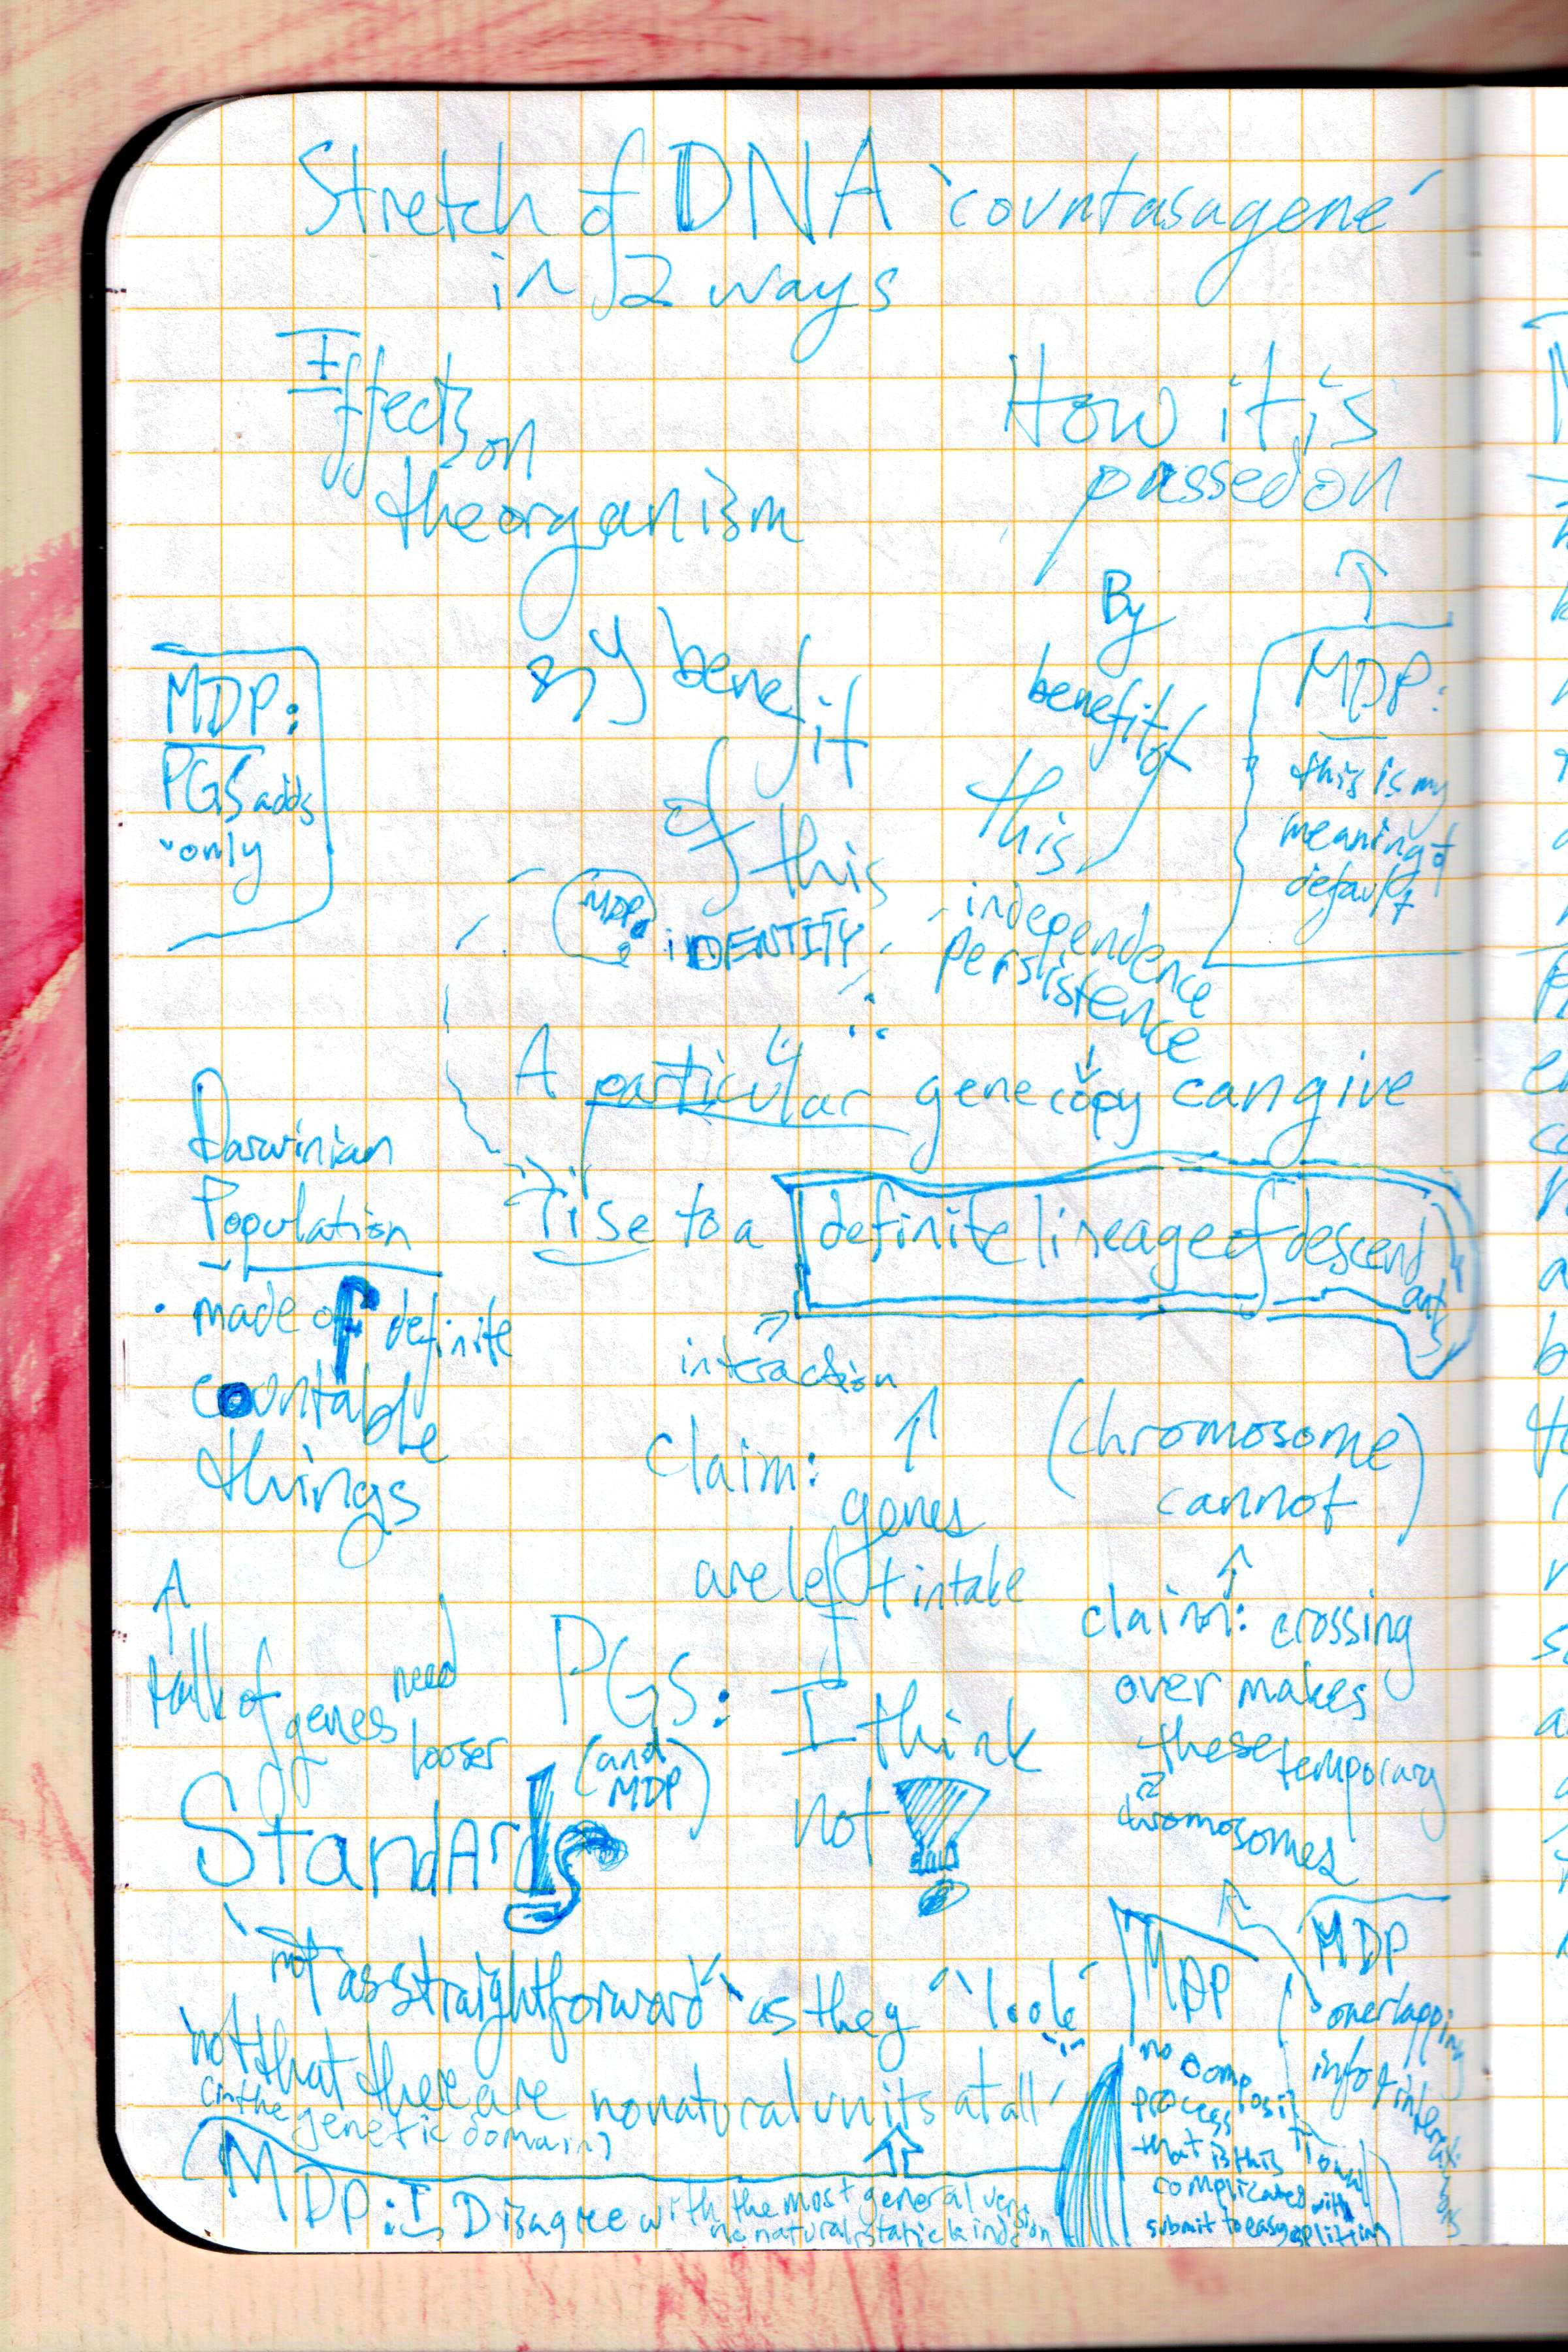 Stretch of DNA `countasagene´
in 2 ways
Effects on
the organism
How it is
passed on
MDP:
PGS adds
only
By benefit
of this
By
benefit of
this
MDP:
this is my
meaning of
default
MDP:
iDENTITY
independence
persistence
A particular gene copy can give
rise to a definite lineage of descend
ants
Darwinian
Population
made of definite
countable
things
interaction
claim:
genes
are left intake
(chromosome
cannot)
claim: crossing
over makes
these temporary
chromosomes
talk of genes need
looser
StandArds
PGS:
(and
MDP)
I think
not
not as straightforward as they "look"
not that there are no natural units at all
(in the
genetic domain)
MDP: I Disagree with the most general version
no natural, static kinds
MDP
no compositional
process
that is this
complicated with
submit to easy splitting
MDP
overlapping
info & interactions